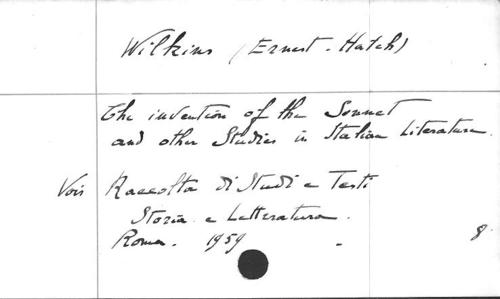 Wilkins (Ernest-Hatch)
The invention of the Sonnet
and other Studies in Italian Literature.
Vois Raccolta di Studi e Testi
Storia e Letteratura.
Roma. 1959 - 8